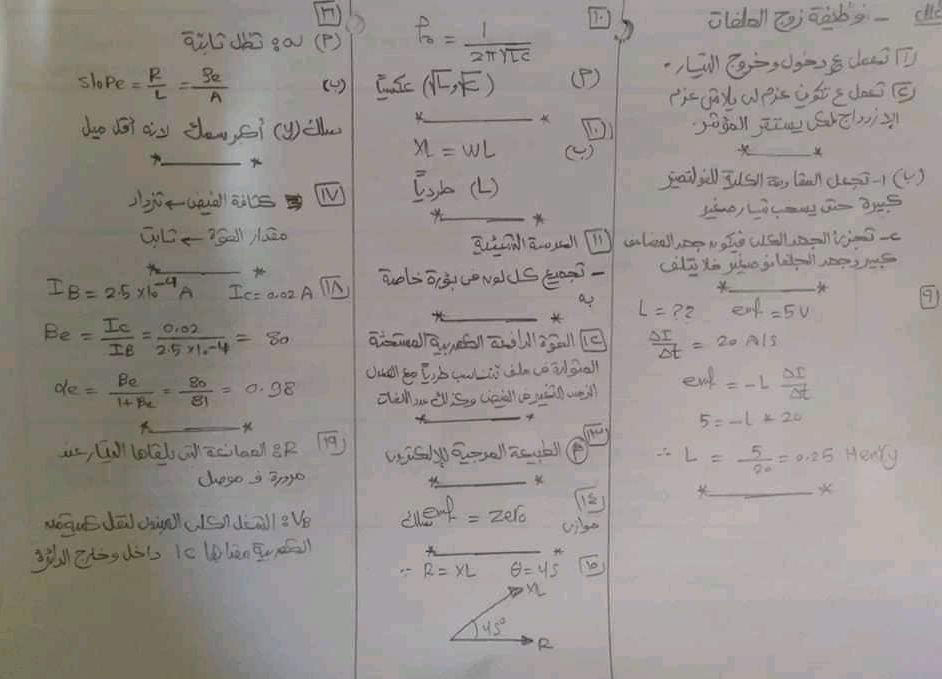 - وظيفة زوج الملفات
١) تعمل ع دخول وخروج التيار.
٢) تعمل ع تكوين عزم لى يلاشى عزم
الازدواج لكى يستقر المؤشر.
(ب) ١- تجعل المقاومة الكلية للفولتميتر
كبيرة حتى يسحب تيار صغير
٢- تجزئ الجهد الكلى فيكون جهد المضاعف
كبير وجهد الجلفانو صغير فلا يتلف
٩
L = ?? emf = 5V
ΔI/Δt = 20 A/s
emf = -L ΔI/Δt
5 = -L * 20
∴ L = 5/20 = 0.25 Henry
١٠
fo = 1/2π√LC
(٢) (√L و√C) عكسياً
١٠
XL = WL (ب)
(L) طردياً
١١ العدسة الشيئية
- تجميع كل لون فى بؤرة خاصة
به
١٢ القوة الدافعة الكهربية المستحثة
المتولدة فى ملف تتناسب طردياً مع المعدل
الزمنى للتغير فى الفيض وكذلك عدد اللفات
١٣ الطبيعة الموجية للإلكترون
١٤
موازى
emf سلك = Zero
١٥
∵ R = XL θ = 45
XL
45°
R
١٦
(٢) a: تظل ثابتة
(ب) Slope = R/L = ρe/A
سلك (y) أكبر سمك لانه أقل ميل
١٧ كثافة الفيض ← تزداد
مقدار القوة ← ثابت
١٨
IB = 2.5 x 10^-4 A Ic = 0.02 A
Be = Ic/IB = 0.02/2.5 x 10^-4 = 80
αe = Be/1+Be = 80/81 = 0.98
١٩ R: الممانعة التى يلقاها التيار عند
مروره فى موصل
VB: الشغل الكلى المبذول لنقل كمية من
الكهربية مقدارها 1C داخل وخارج الدائرة